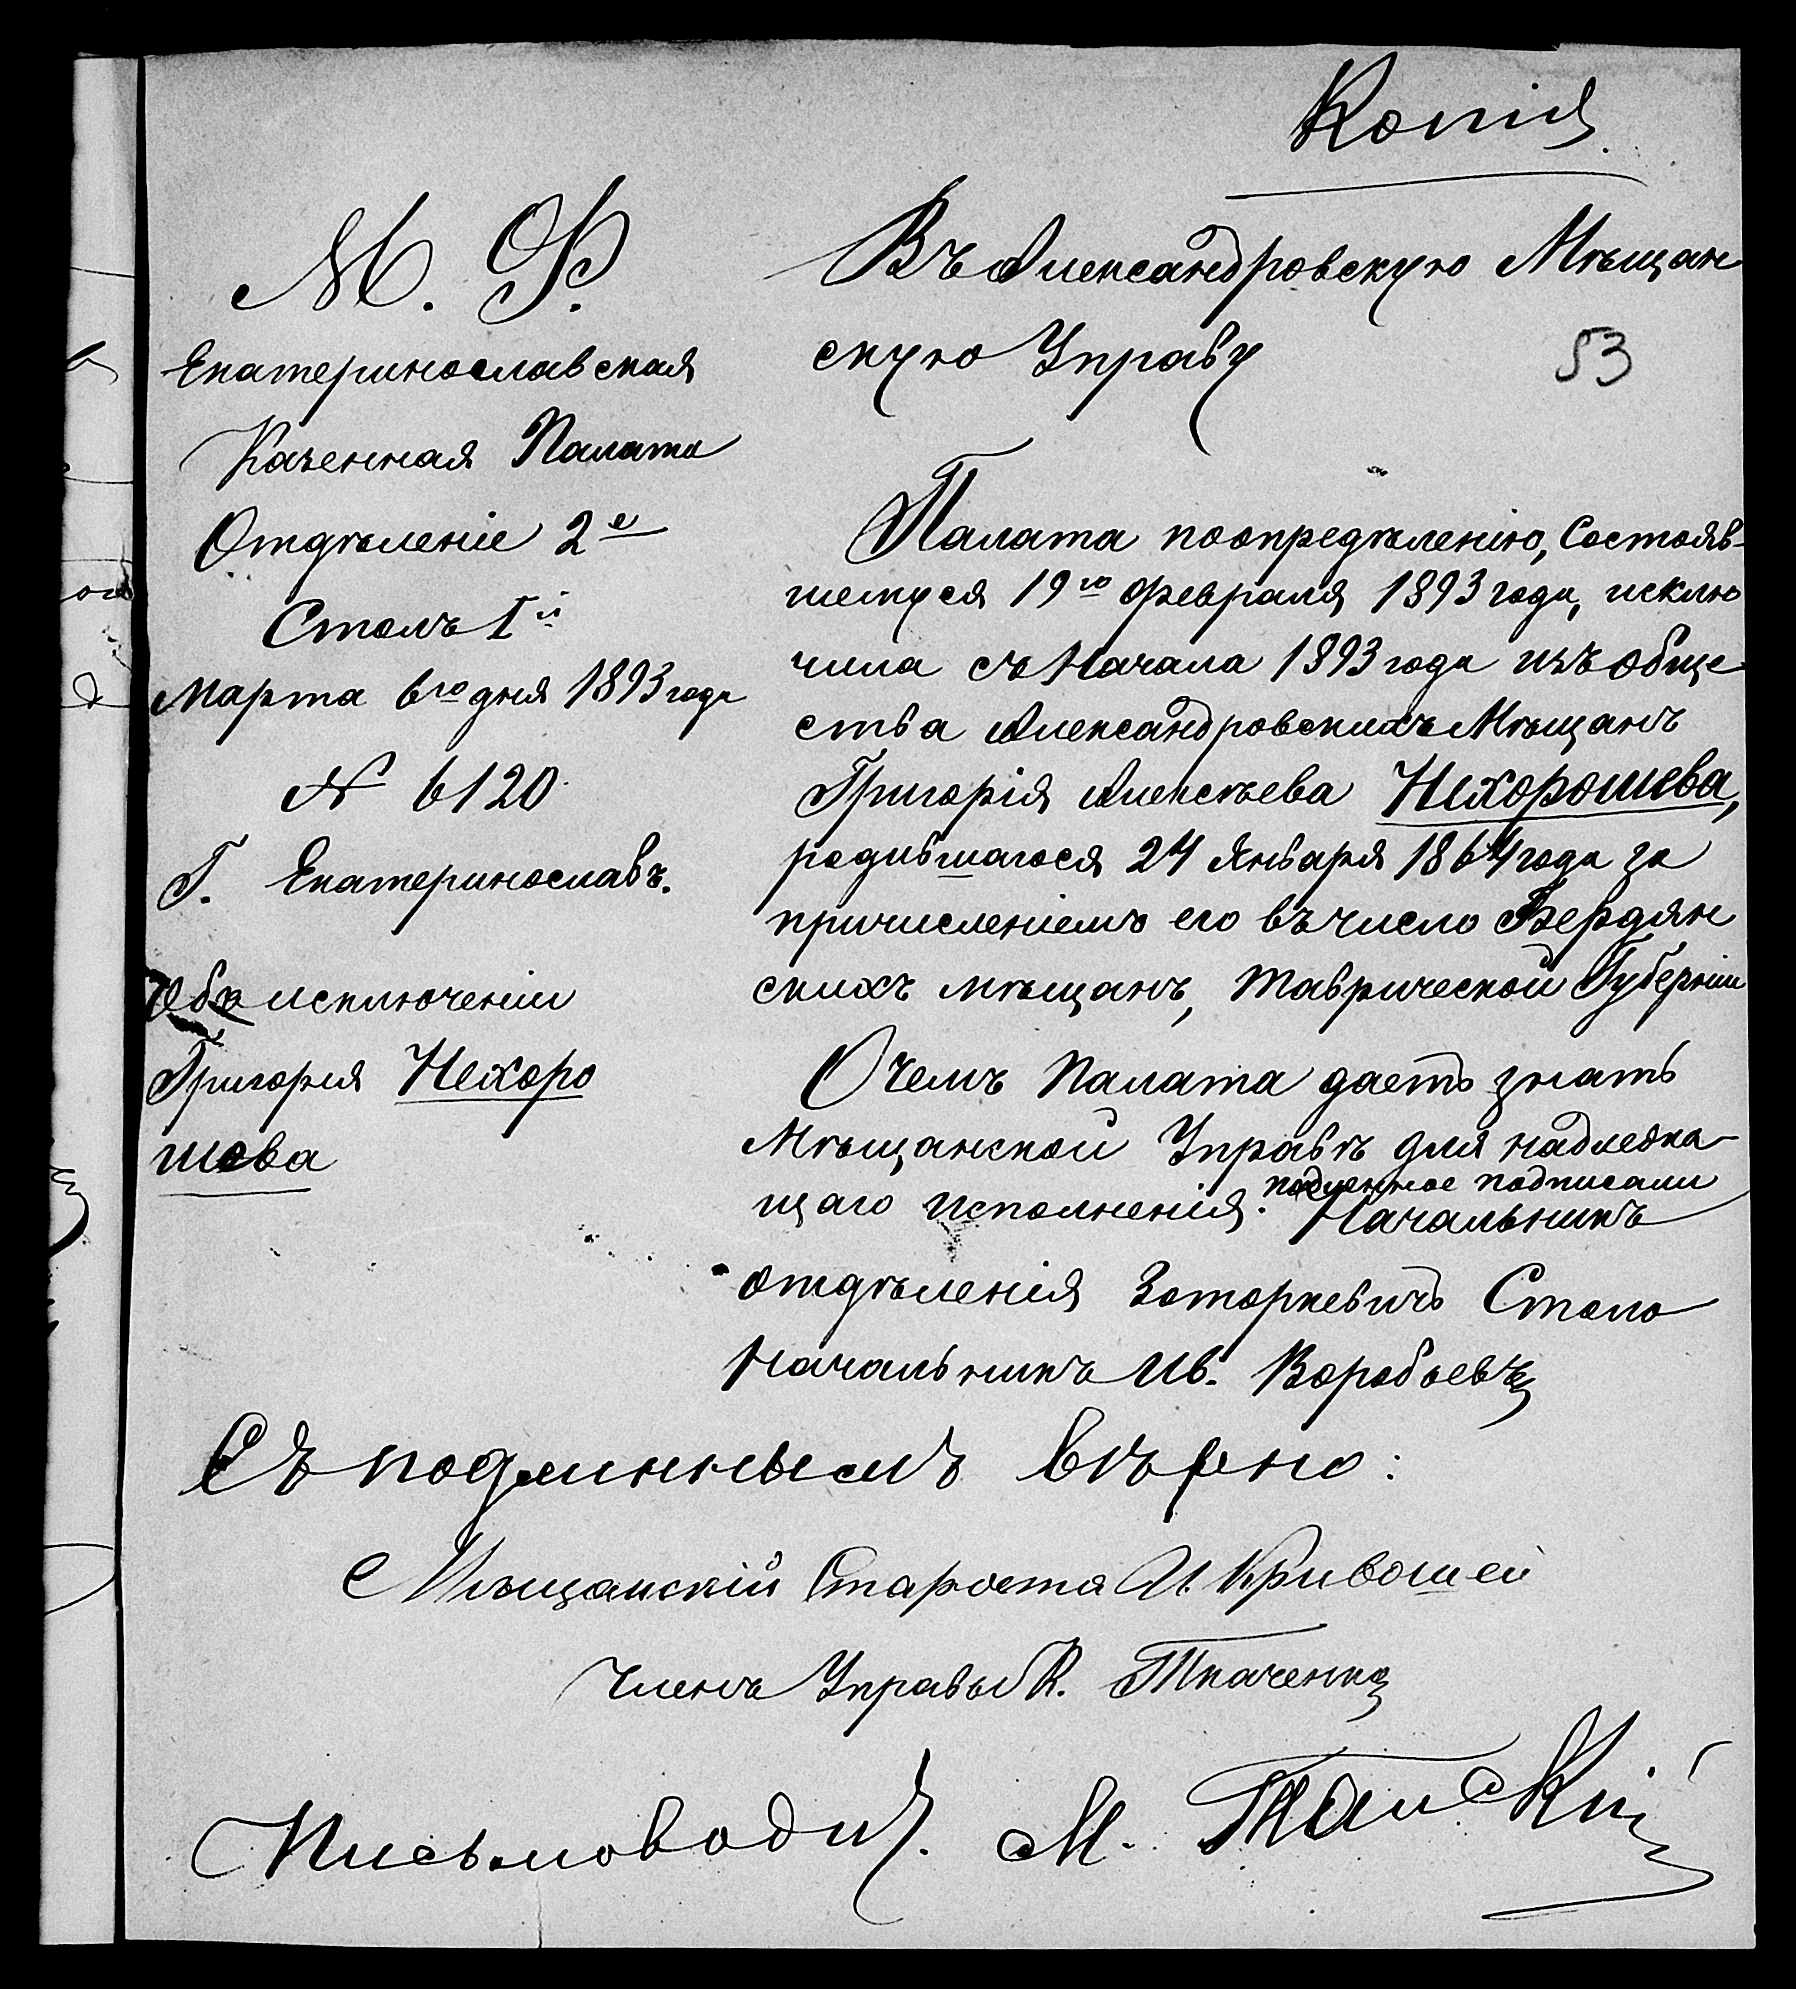 Копія.
М. Ф.
Екатеринославская
Казенная Палата
Отдѣленіе 2е
Столъ Iй
Марта 6го дня 1893 года
№ 6120
Г. Екатеринославъ.
Объ исключеніи
Григорія Нехоро
шева
Въ Александровскую Мѣщан
скую Управу
53
Палата по опредѣленію, Состояв-
шемуся 19го февраля 1893 года, исклю
чила съ Начала 1893 года изъ обще
ства Александровскихъ Мѣщанъ
Григорія Алексѣева Нехорошева,
родившагося 24 Января 1864 года за
причисленіемъ его въ число Бердян
скихъ мѣщанъ, Таврической Губерніи
О чемъ Палата даетъ знать
Мѣщанской Управѣ для надлежа-
щаго исполненія. подленное подписали
Начальникъ
отдѣленія Столо
Начальникъ Ив. Воробьевъ
Съ подлиннымъ вѣрно:
Мѣщанскій Староста И. Кривошей
Членъ Управы К. Ткаченко
Письмоводит. М.